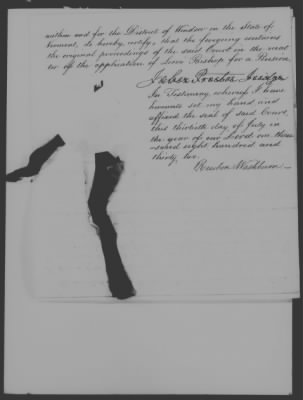 within and for the District of Windsor in the State of
Vermont, do hereby certify, that the foregoing contains
the original proceedings of the said Court in the mat
ter of the application of Levi Bishop for a Pension.
Jabez Proctor Judge
In Testimony, whereof I have
hereunto set my hand and
affixed the seal of said Court,
this thirtieth day of July in
the year of our Lord one thou
-sand eight hundred and
thirty two.
Reuben Washburn